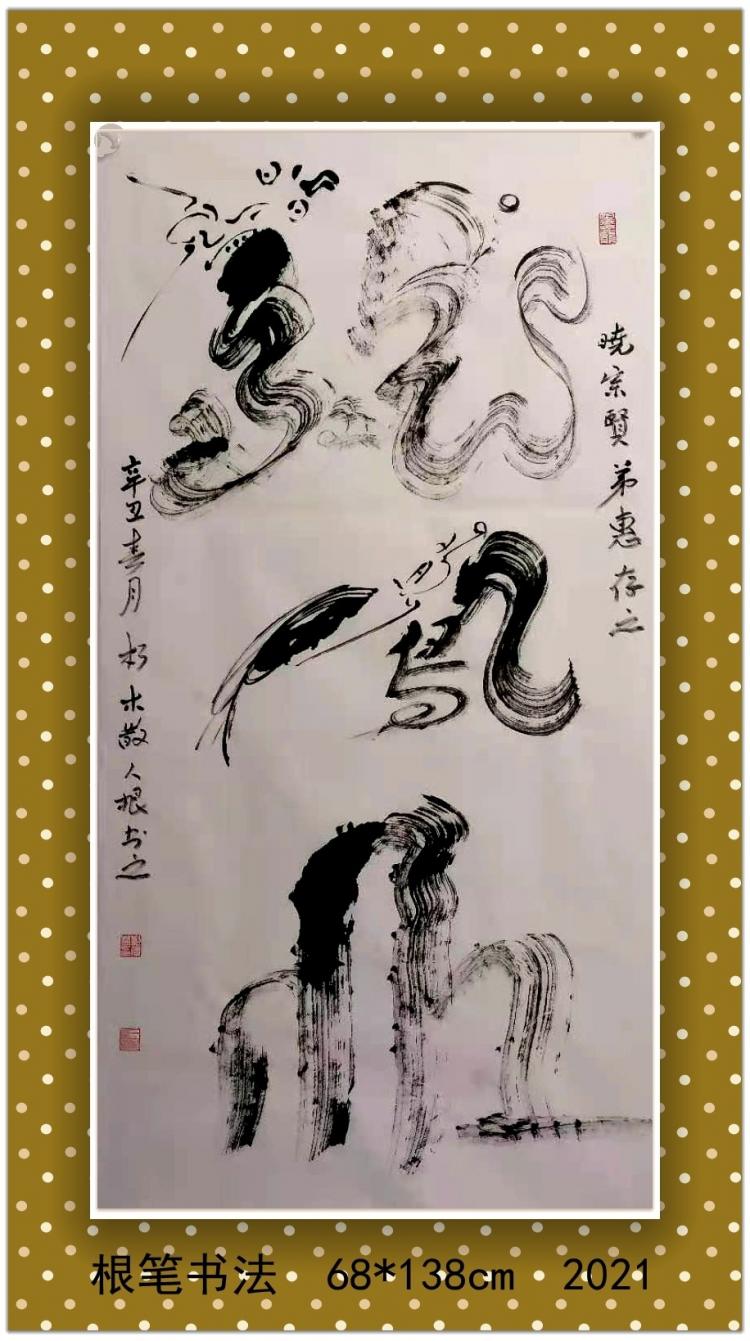 晓宗賢弟惠存之
龍
鳳
辛丑春月 朽木散人根书之
根笔书法 68*138cm 2021